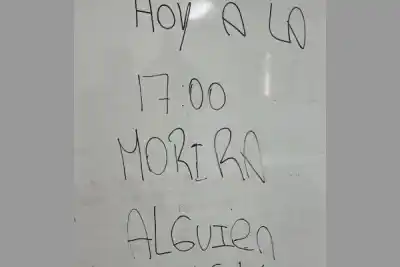 HOY A LA
17:00
MORIRA
ALGUIEN